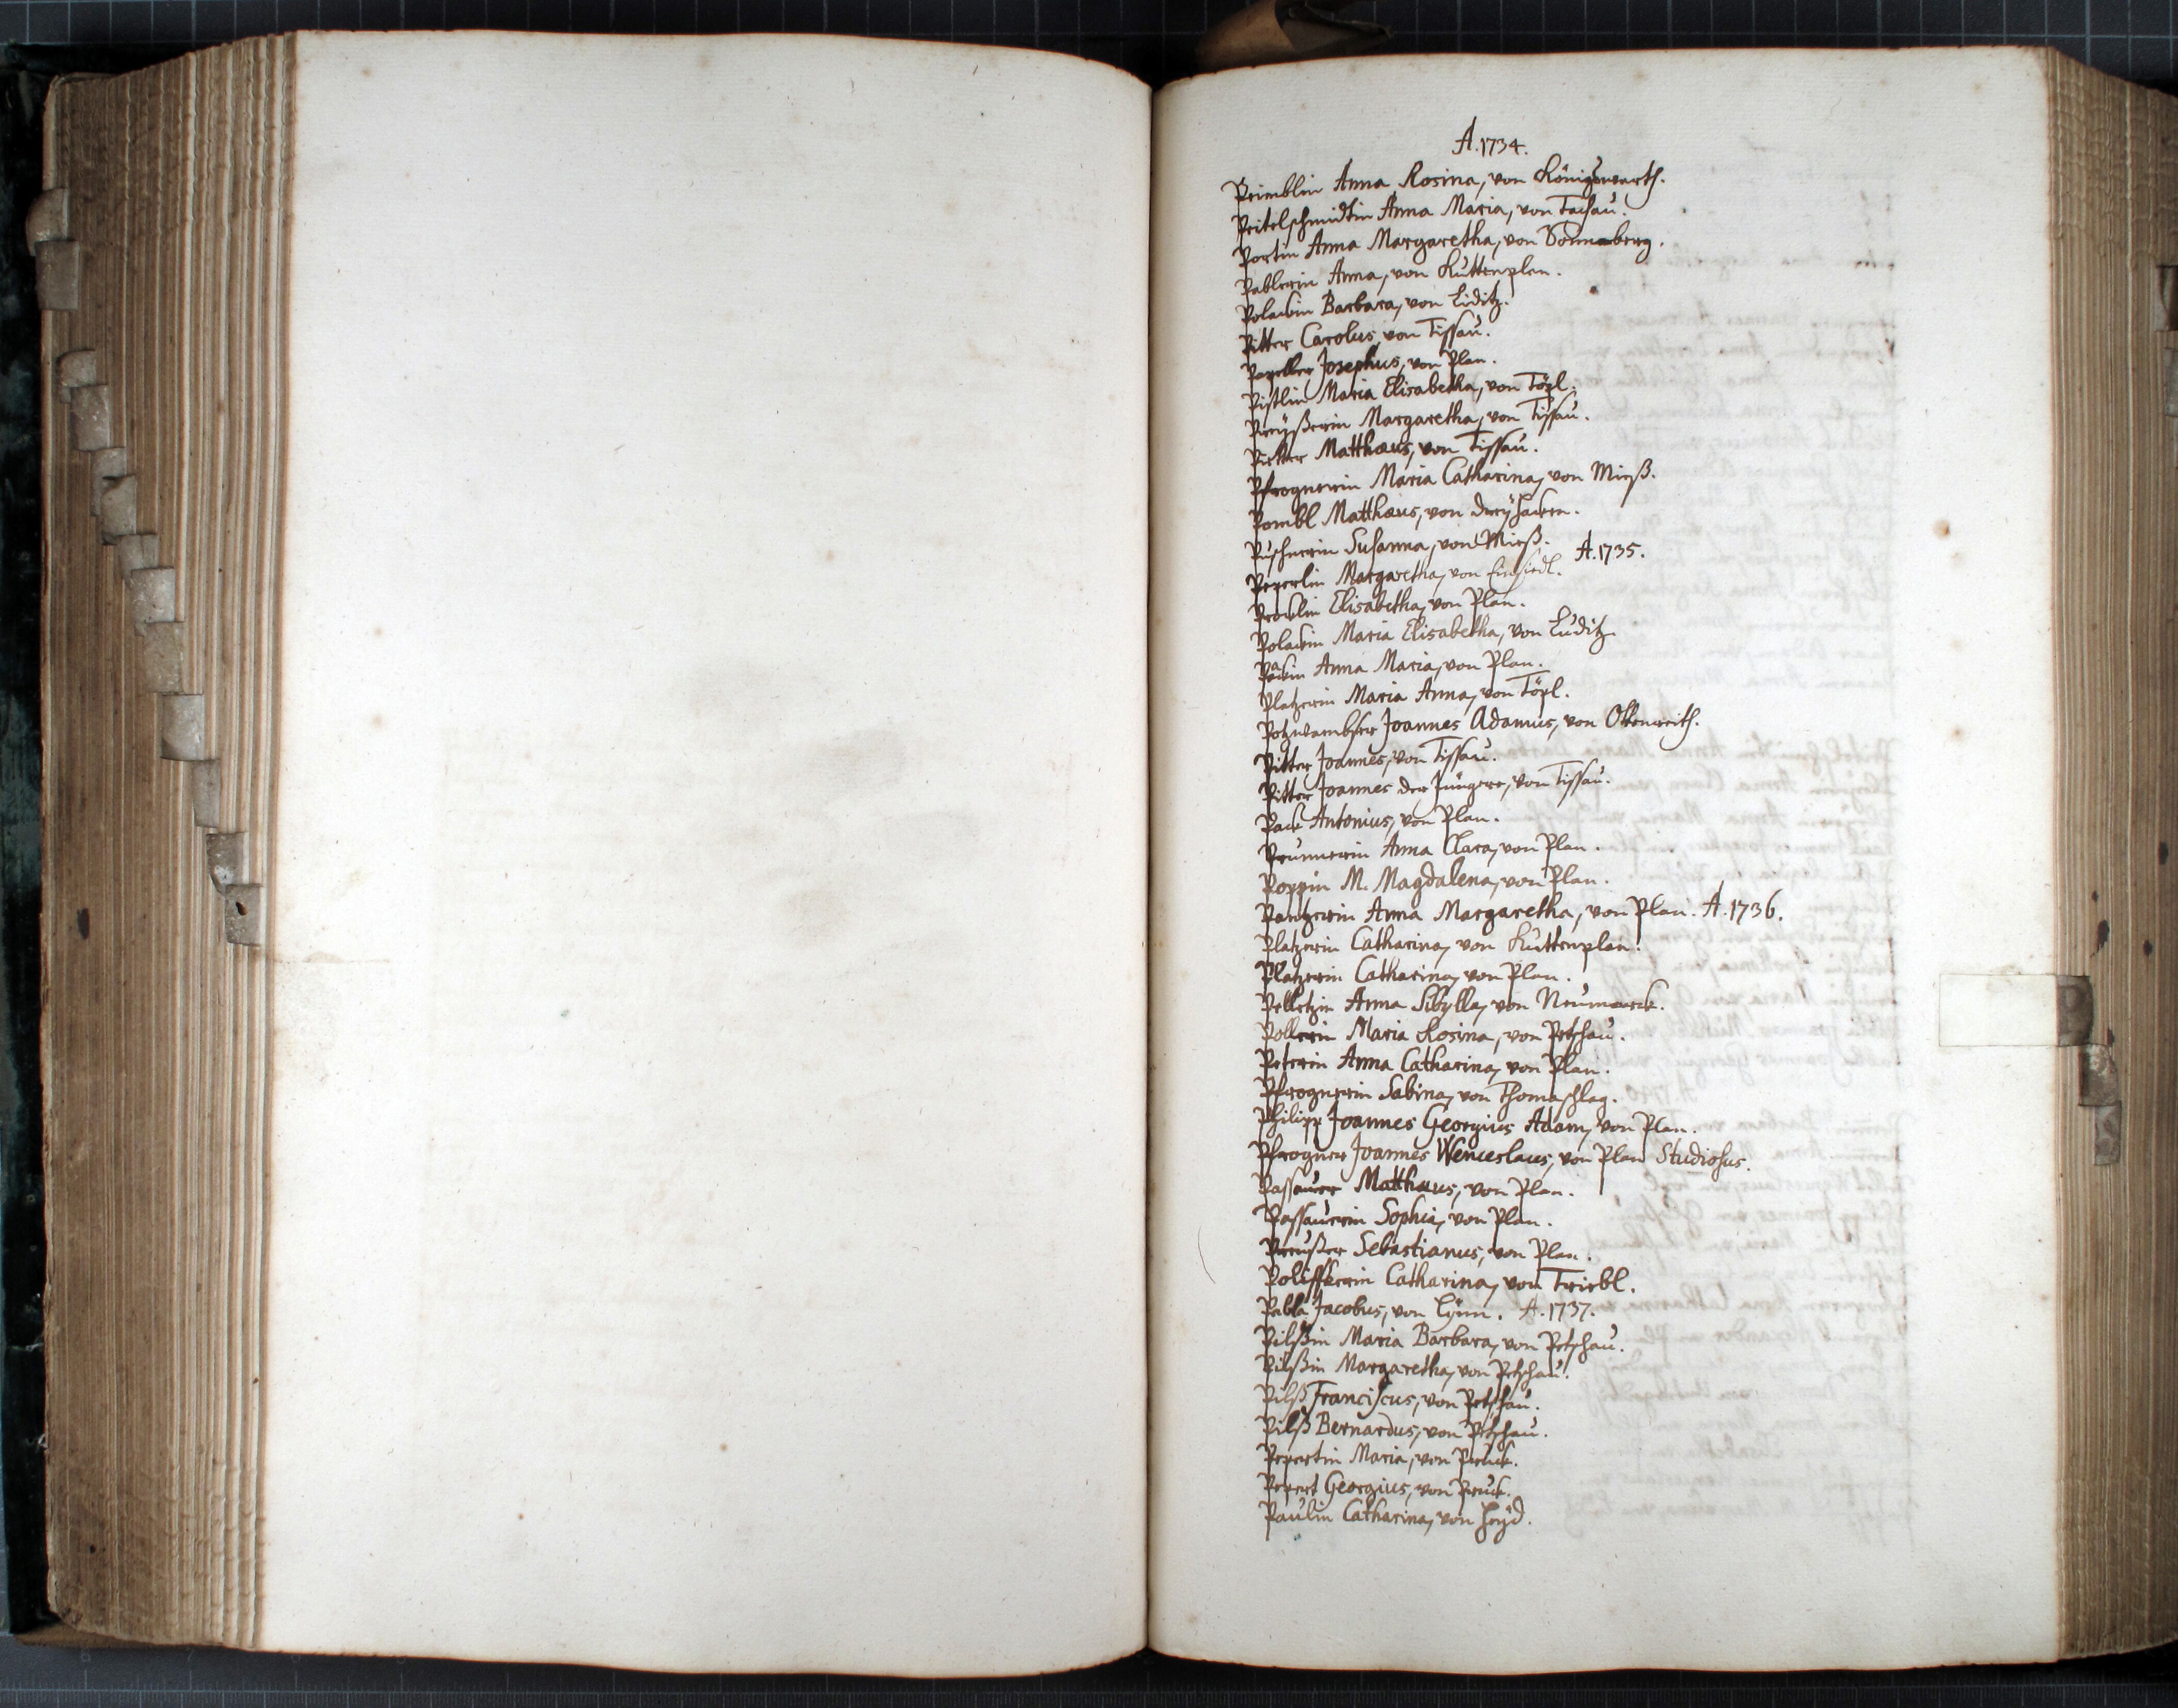 A. 1734.
Peimblin Anna Rosina, von Königswarth.
Peitelschmidtin Anna Maria, von Tachau.
Portin Anna Margaretha, von Sonnaberg.
Pablerin Anna, von Kuttenplan.
Polackin Barbara, von Liditz.
Pitter Carolus, von Tissau.
Josephus, von Plan.
Pistlin Maria Elisabetha, von Töpl.
Preyßerin Margaretha, von Tissau.
Pitter Matthæus, von Tissau.
Pfrognerin Maria Catharina, von Mieß.
Pombl Matthæus, von Dreyhacken.
Puschnerin Susanna, von Mieß. A. 1735.
Peperlin Margaretha, von Einsiedl.
Elisabetha, von Plan.
Polackin Maria Elisabetha, von Luditz.
Packin Anna Maria, von Plan.
Platzerin Maria Anna, von Töpl.
Joannes Adamus, von Ottenreith.
Pitter Joannes, von Tissau.
Pitter Joannes der Jüngere, von Tissau.
Pack Antonius, von Plan.
Prunnerin Anna Clara, von Plan.
Poppin M. Magdalena, von Plan.
Pantzerin Anna Margaretha, von Plan. A. 1736.
Platzerin Catharina, von Kuttenplan.
Platzerin Catharina, von Plan.
Pelletzin Anna Sibylla, von Neumarck.
Pollerin Maria Rosina, von Petschau.
Peterin Anna Catharina, von Plan.
Pfrognerin Sabina, von Thomaschlag.
Philipp Joannes Georgius Adam, von Plan.
Pfrogner Joannes Wenceslaus, von Plan Studiosus.
Passauer Matthæus, von Plan.
Passauerin Sophia, von Plan.
Preußer Sebastianus, von Plan.
Poliffkerin Catharina, von Triebl.
Pabla Jacobus, von Lÿnn. A. 1737.
Pilßin Maria Barbara, von Petschau.
Pilßin Margaretha, von Petschau.
Pilß Franciscus, von Petschau.
Pilß Bernardus, von Petschau.
Pepertin Maria, von Pruck.
Pepert Georgius, von Pruck.
Paulin Catharina, von Heÿd.